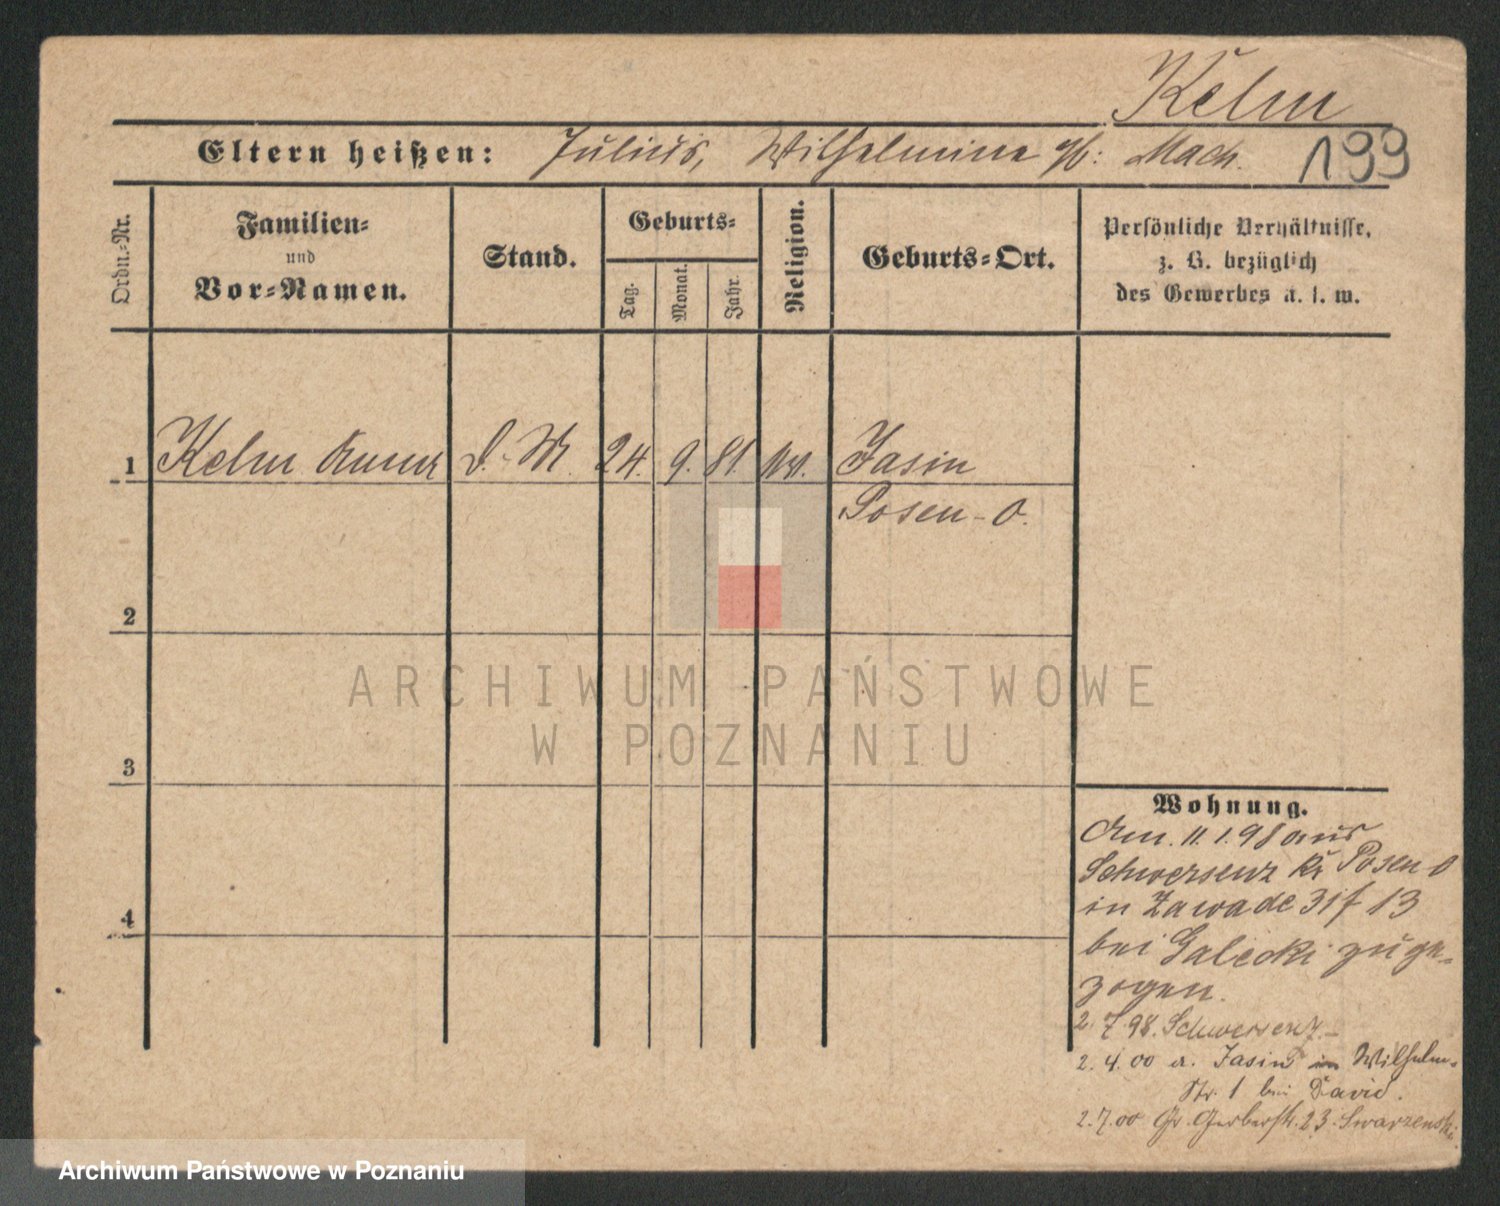 Kelm
Eltern heißen: Julius, Wilhelmine gb: Mach.
199
Ordn.-Nr.
Familien-
und
Vor-Namen.
Stand.
Geburts-
Tag.
Monat.
Jahr.
Religion.
Geburts-Ort.
Persönliche Verhältnisse,
z. B. bezüglich
des Gewerbes u. s. w.
1 Kelm Anna D. M. 24. 9. 81. Jasin
Posen-O.
2
ARCHIWUM PAŃSTWOWE
W POZNANIU
3
Wohnung.
Am. 11.1.98 aus
Schwersenz Kr Posen O
in Zawade 13
bei Galecki zuge-
zogen.
4
2.7.98. Schwersenz
2.4.00 a. Jasin in Wilhelm-
Str. 1 bei David.
2.7.00 Gr. Gerberstr. 23. Swarzenski
Archiwum Państwowe w Poznaniu